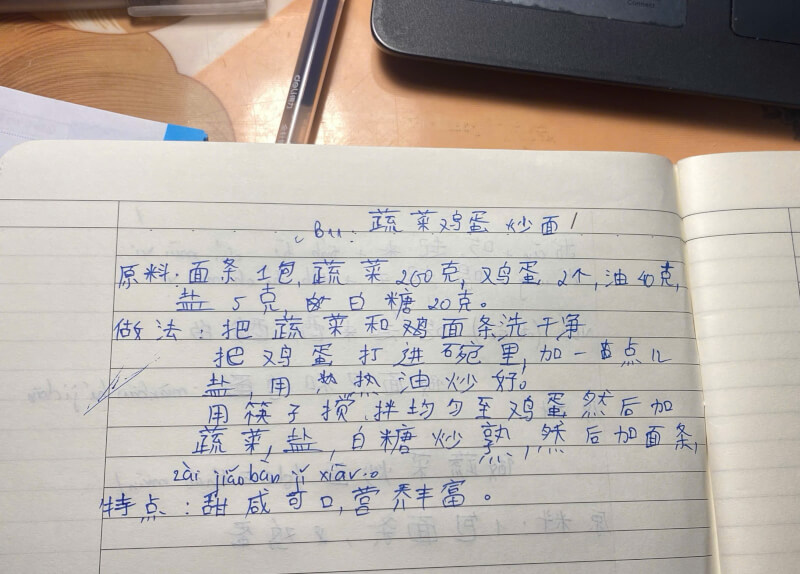 deli
B11. 蔬菜鸡蛋炒面
原料:面条1包,蔬菜200克,鸡蛋2个,油40克,
盐5克,白糖20克。
做法:把蔬菜和鸡面条洗干净
把鸡蛋打进碗里,加一点儿
盐,用热油炒好。
用筷子搅拌均匀至鸡蛋然后加
蔬菜,盐,白糖炒熟,然后加面条,
zài jiǎobàn jǐ xiàr。
特点:甜咸可口,营养丰富。